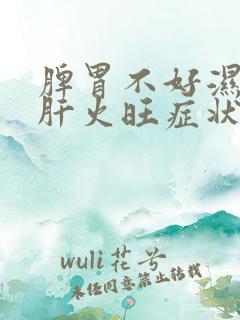 脾胃不好濕
肝火旺症状
wuli花兮
未经同意禁止转载